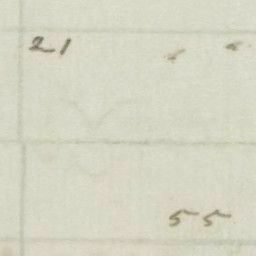 21
55